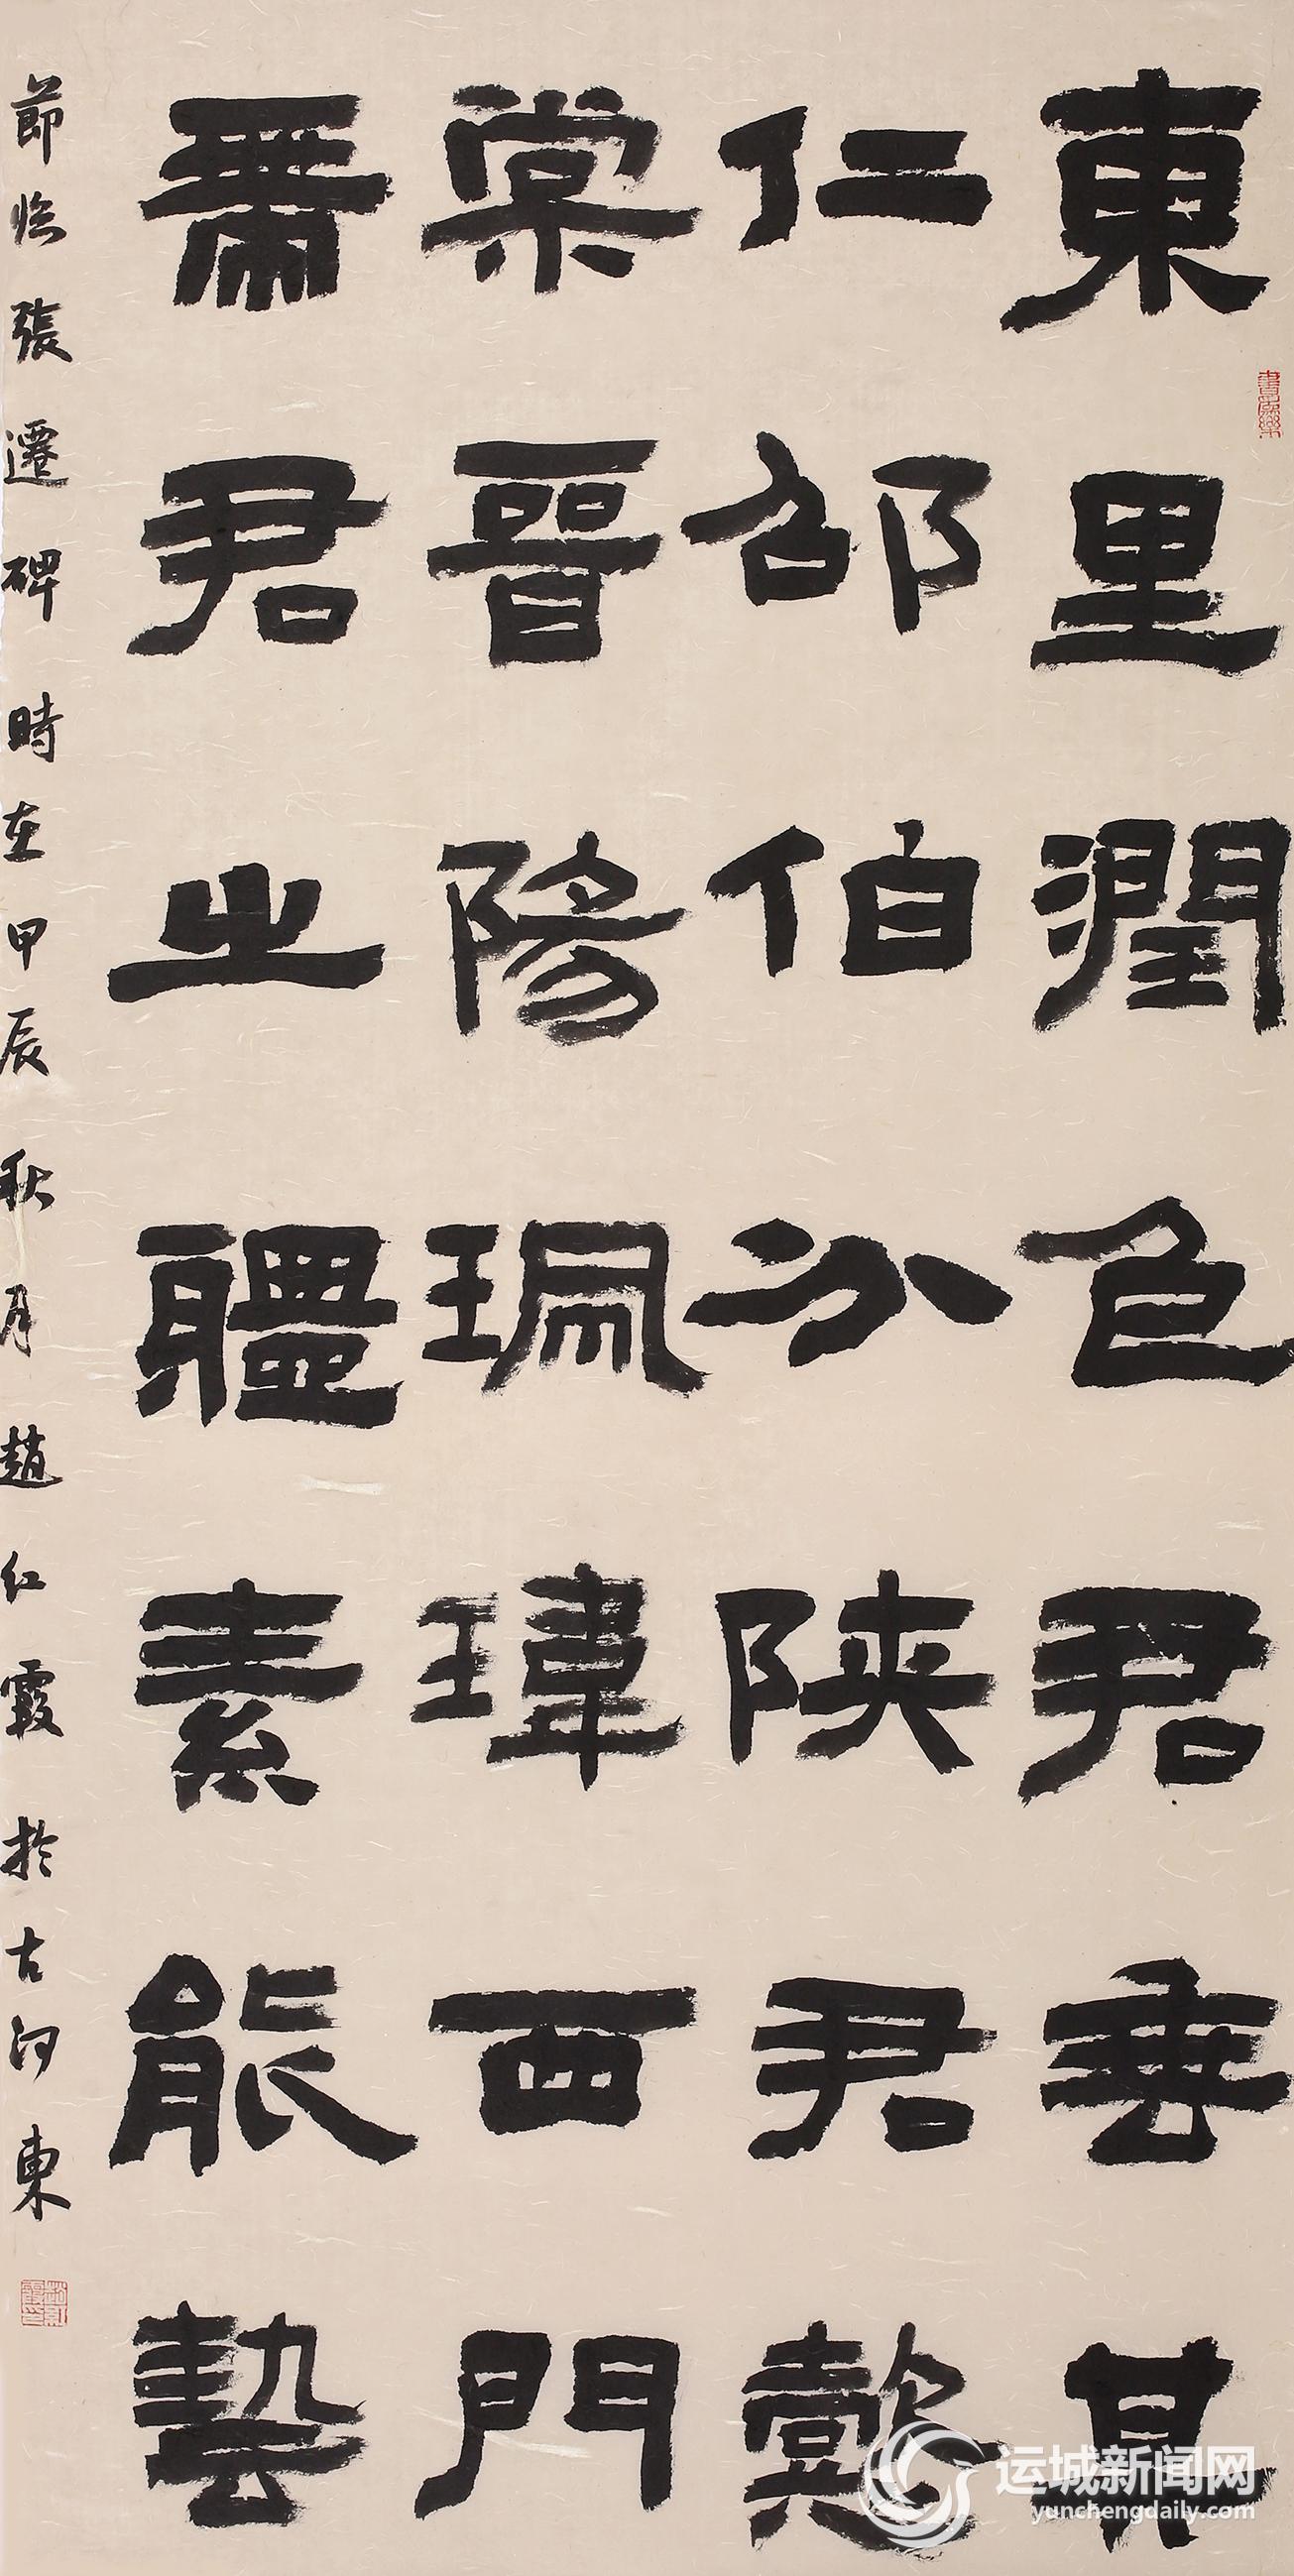 東里潤色君垂其
仁邵伯分陝君懿
棠晉陽珮瑋西門
帶君之體素能藝
節臨張遷碑時在甲辰秋月趙紅霞於古河東
趙紅霞印
运城新闻网
yunchengdaily.com